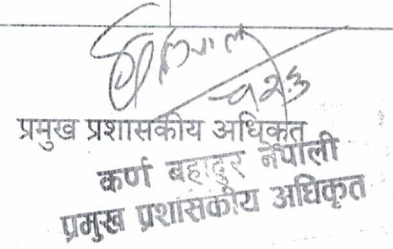 प्रमुख प्रशासकीय अधिकृत
कर्ण बहादुर नेपाली
प्रमुख प्रशासकीय अधिकृत